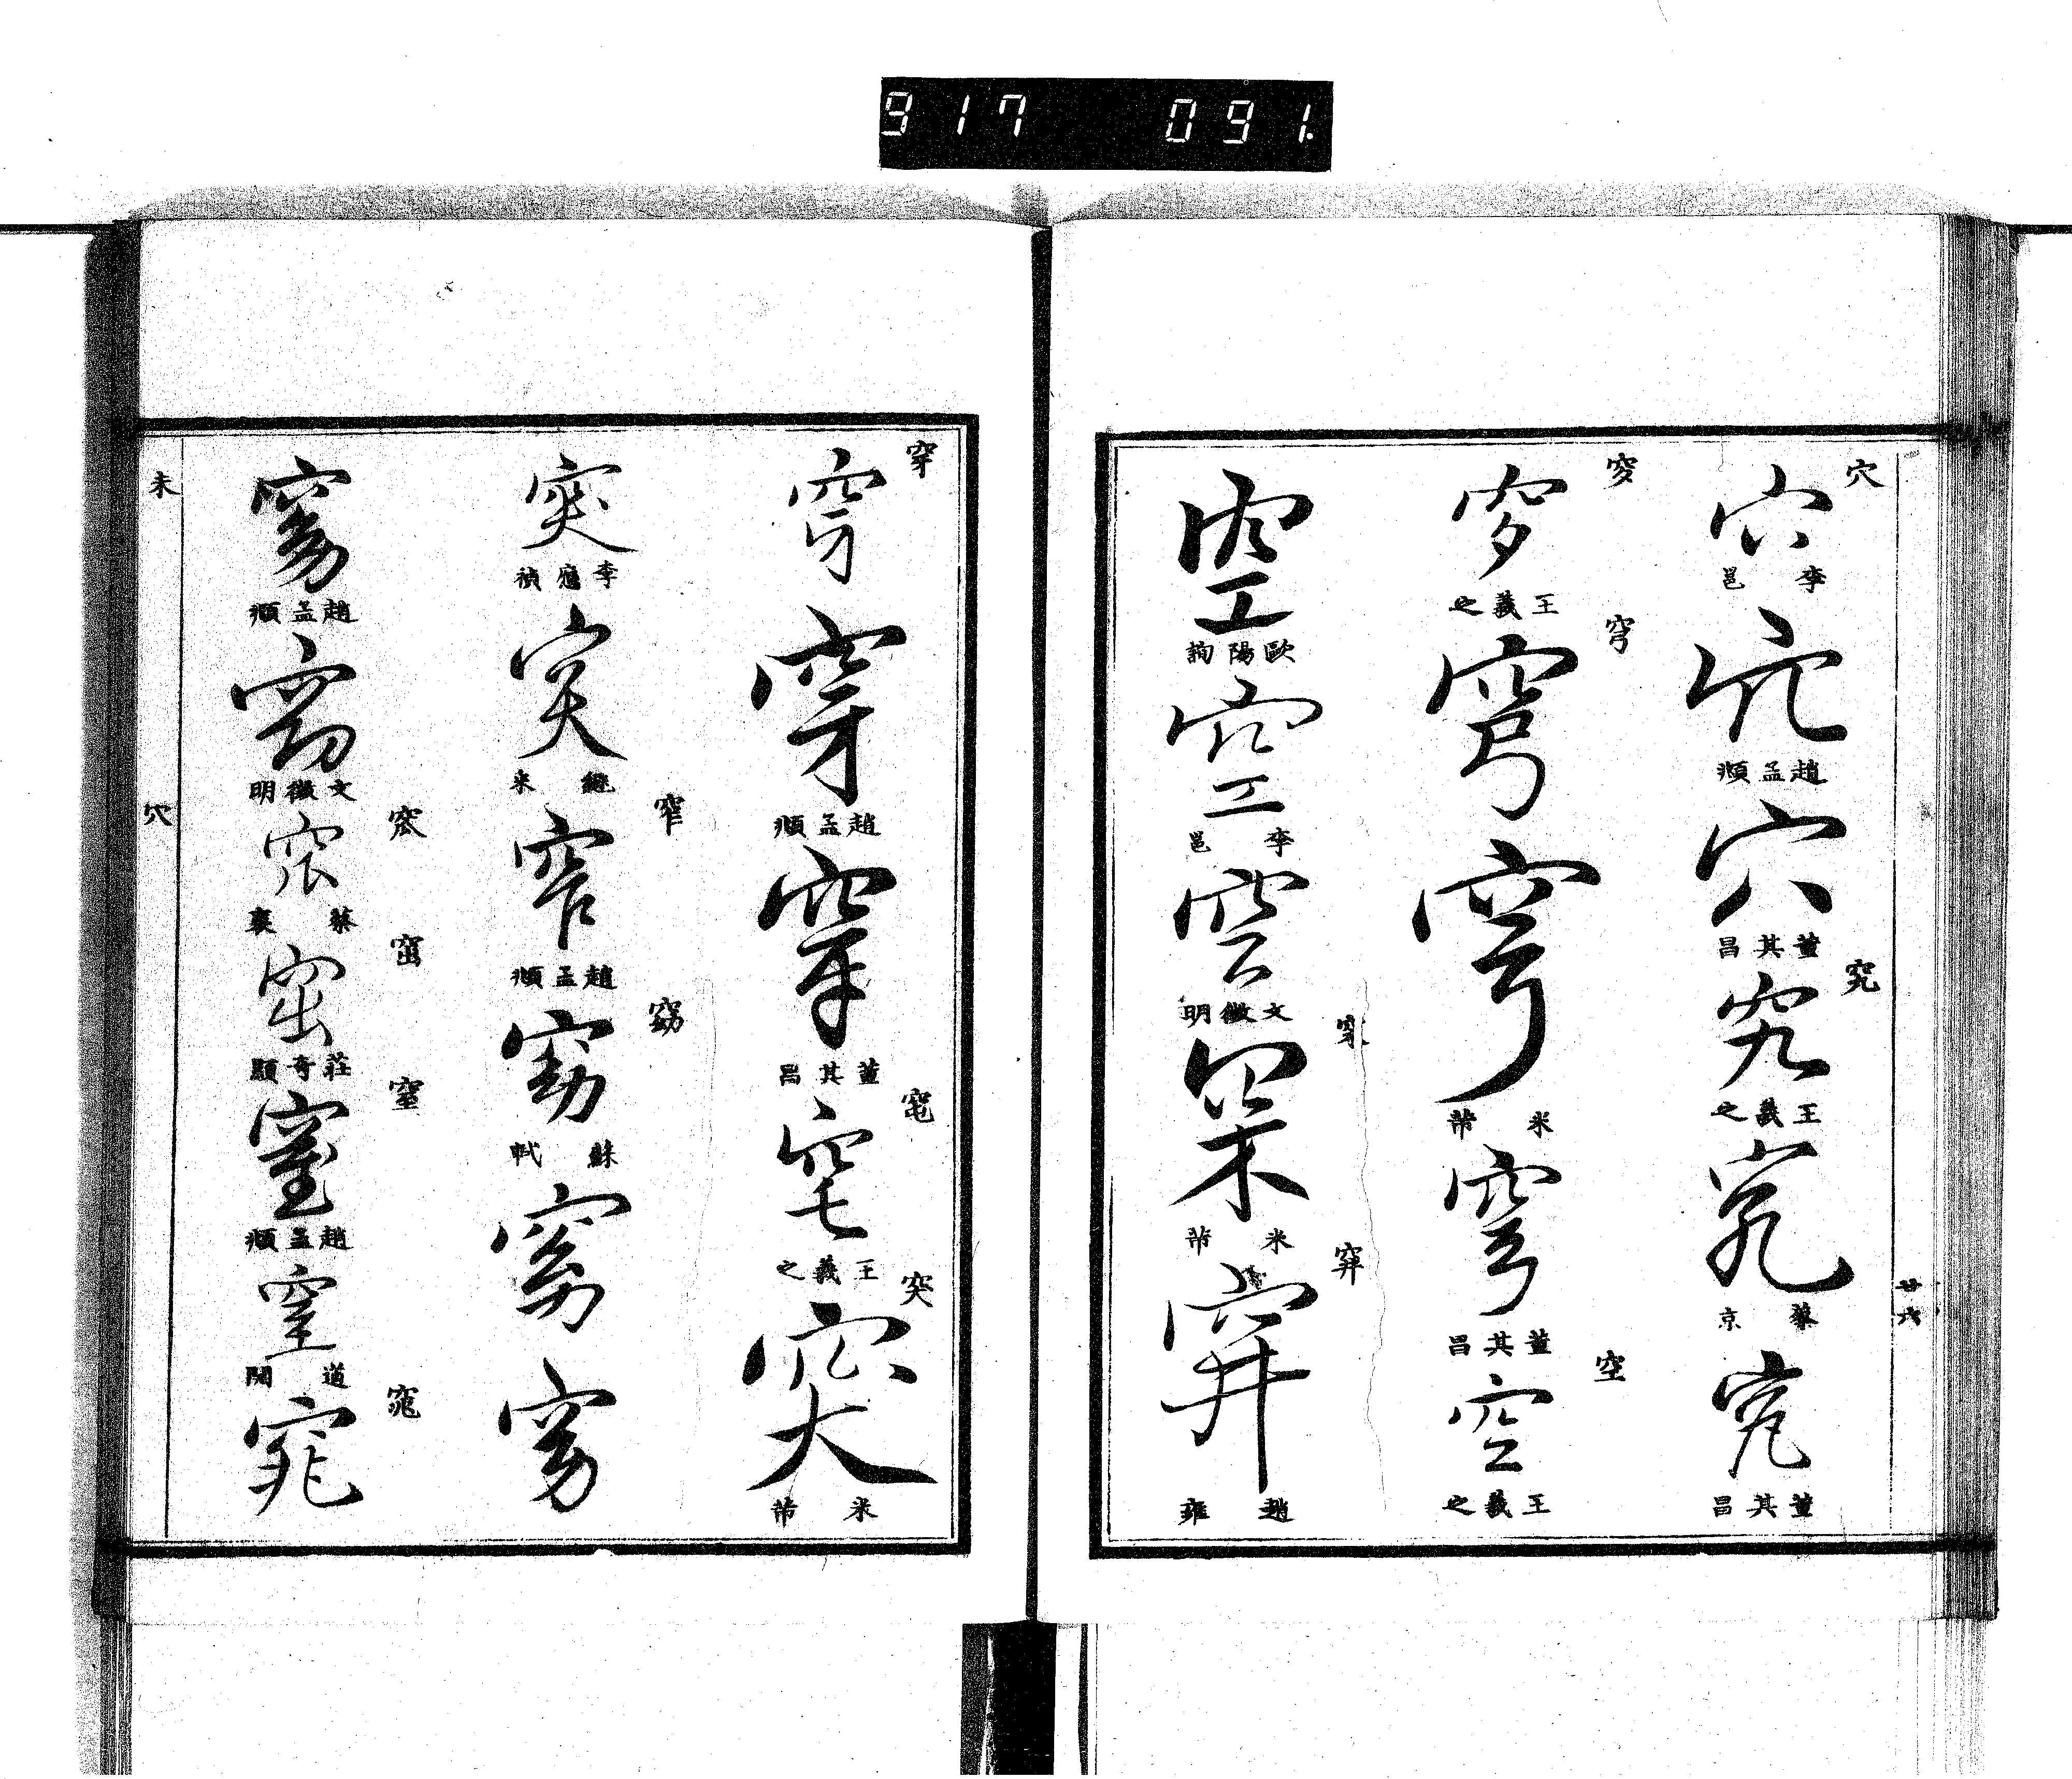 917 091
穴
穴
李邕
穴
趙孟頫
穴
董其昌
究
究
王羲之
究
蔡京
究
董其昌
廿六
穸
王羲之
穹
穹
穹
米芾
穹
董其昌
空
空
王羲之
空
歐陽詢
空
李邕
空
文徵明
米芾
穽
穽
趙雍
穿
穿
穿
趙孟頫
穿
董其昌
王羲之
突
突
米芾
突
李應禎
突
窄
窄
趙孟頫
窈
窈
蘇軾
窈
窈
窈
趙孟頫
窈
文徵明
蔡襄
窋
窋
莊奇顯
窒
窒
趙孟頫
窒
道開
窕
窕
未
穴